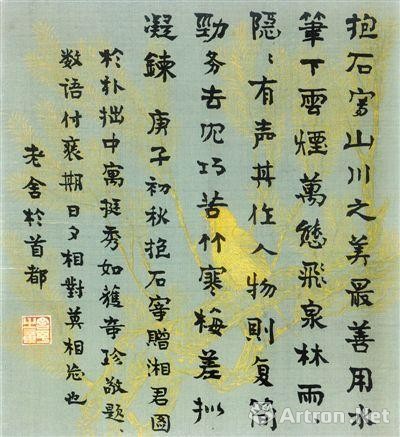 抱石寫山川之美最善用水
筆下雲煙萬態飛泉林雨
隱〻有声其作人物則复简
勁务去巧苦竹寒梅差拟
凝鍊 庚子初秋抱石宰贈湘君圖
於朴拙中寓挺秀如獲奇珍敬題
数语付期日夕相對莫相忘也
老舍於首都
Artron.Net